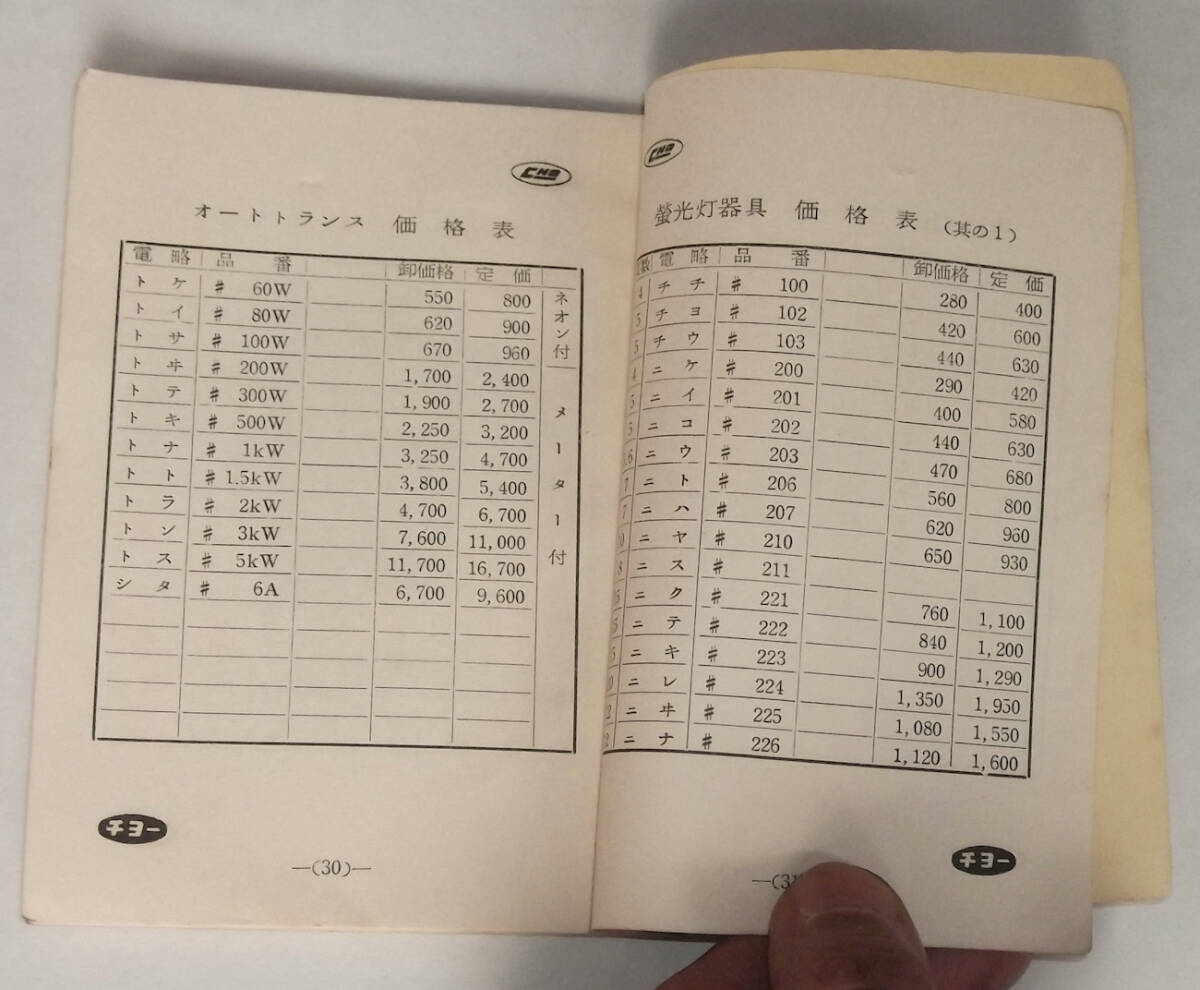 CHB
オートトランス 価格表
電略 品番 卸価格 定価
トケ # 60W 550 800
トイ # 80W 620 900
トサ # 100W 670 960
トヰ # 200W 1,700 2,400
トテ # 300W 1,900 2,700
トキ # 500W 2,250 3,200
トナ # 1kW 3,250 4,700
トト # 1.5kW 3,800 5,400
トラ # 2kW 4,700 6,700
トン # 3kW 7,600 11,000
トス # 5kW 11,700 16,700
シタ # 6A 6,700 9,600
ネオン付
メーター付
チヨー
—(30)—
CHB
螢光灯器具 価格表 (其の1)
数 電略 品番 卸価格 定価
4 チチ # 100 280 400
5 チヨ # 102 420 600
5 チウ # 103 440 630
4 ニケ # 200 290 420
5 ニイ # 201 400 580
5 ニコ # 202 440 630
6 ニウ # 203 470 680
7 ニト # 206 560 800
7 ニハ # 207 620 960
10 ニヤ # 210 650 930
8 ニス # 211
ニク # 221 760 1,100
5 ニテ # 222 840 1,200
5 ニキ # 223 900 1,290
0 ニレ # 224 1,350 1,950
2 ニヰ # 225 1,080 1,550
2 ニナ # 226 1,120 1,600
チヨー
—(3